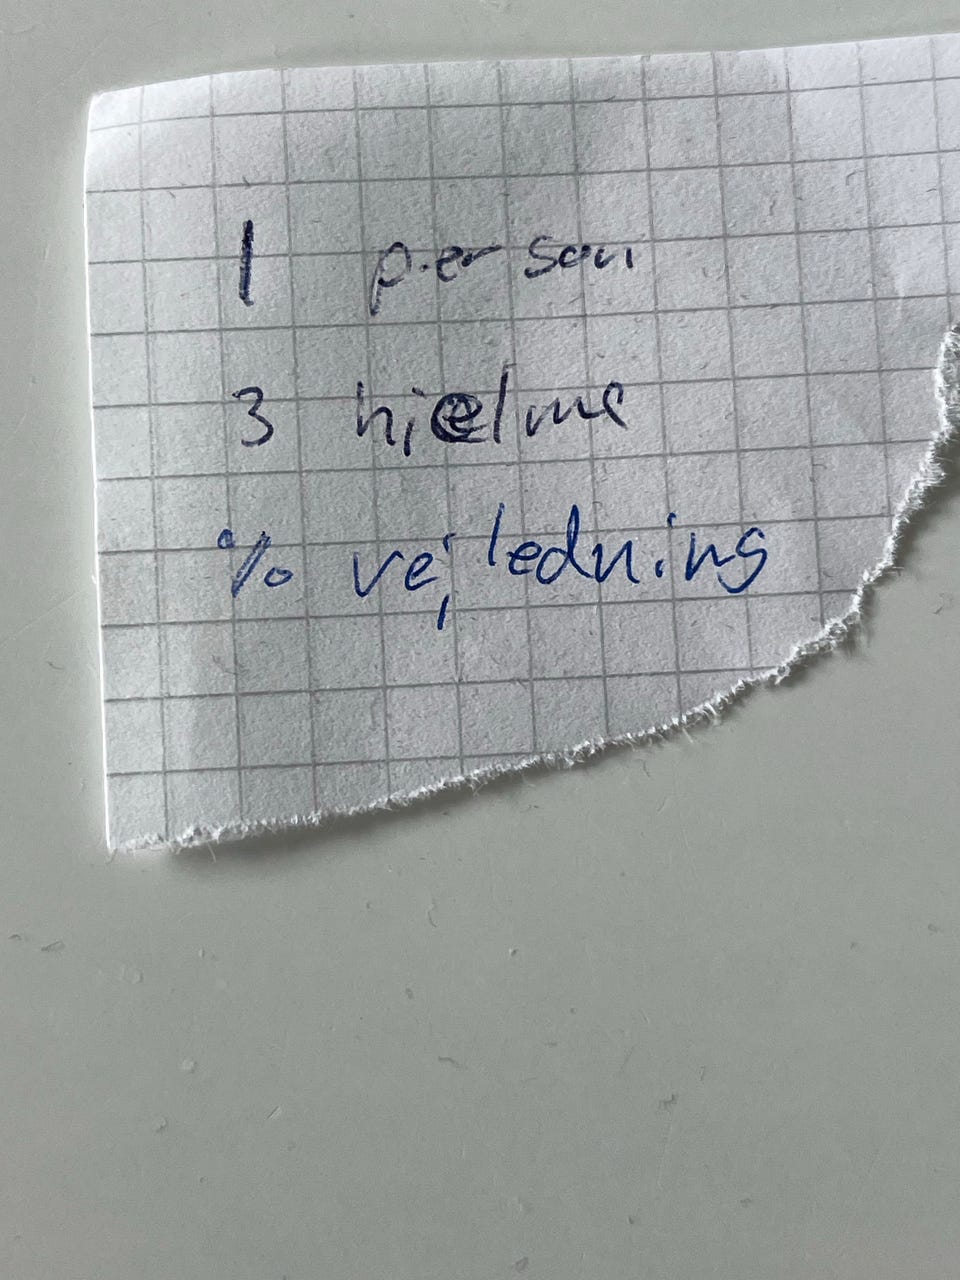 1 person
3 hjelme
% vejledning